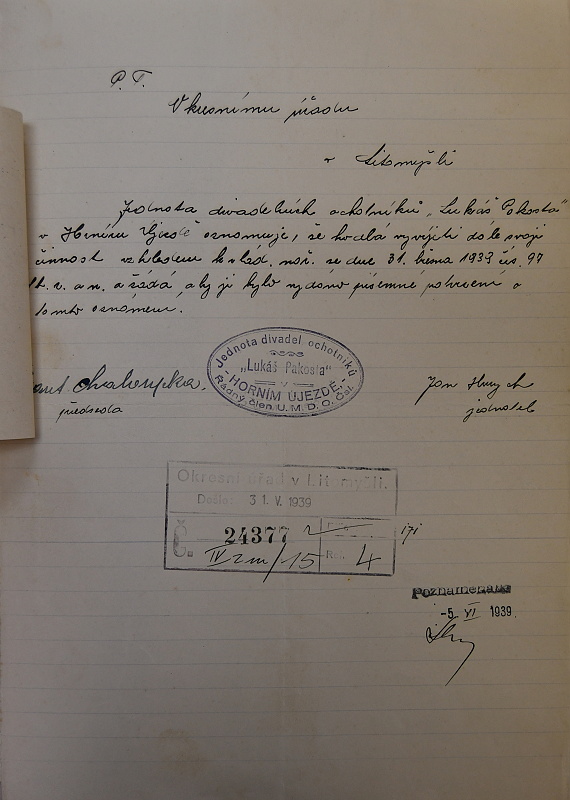 P. T.
Okresnímu úřadu
v Litomyšli
Jednota divadelních ochotníků "Lukáš Pakosta"
v Horním Újezdě oznamuje, že hodlá vyvíjeti dále svoji
činnost vzhledem k vlád. nař. ze dne 31. března 1939 čís. 97
Sb. z. a n. a žádá, aby jí bylo vydáno písemné potvrzení o
tomto oznámení.
Jednota divadel. ochotníků
"Lukáš Pakosta"
V
HORNÍM ÚJEZDĚ
Řádný člen U. M. D. O. Čsl.
předseda
Jan
jednatel
Okresní úřad v Litomyšli.
Došlo: 31. V. 1939
Č. 24377
IV 15
4
Poznamenáno
-5. VI 1939